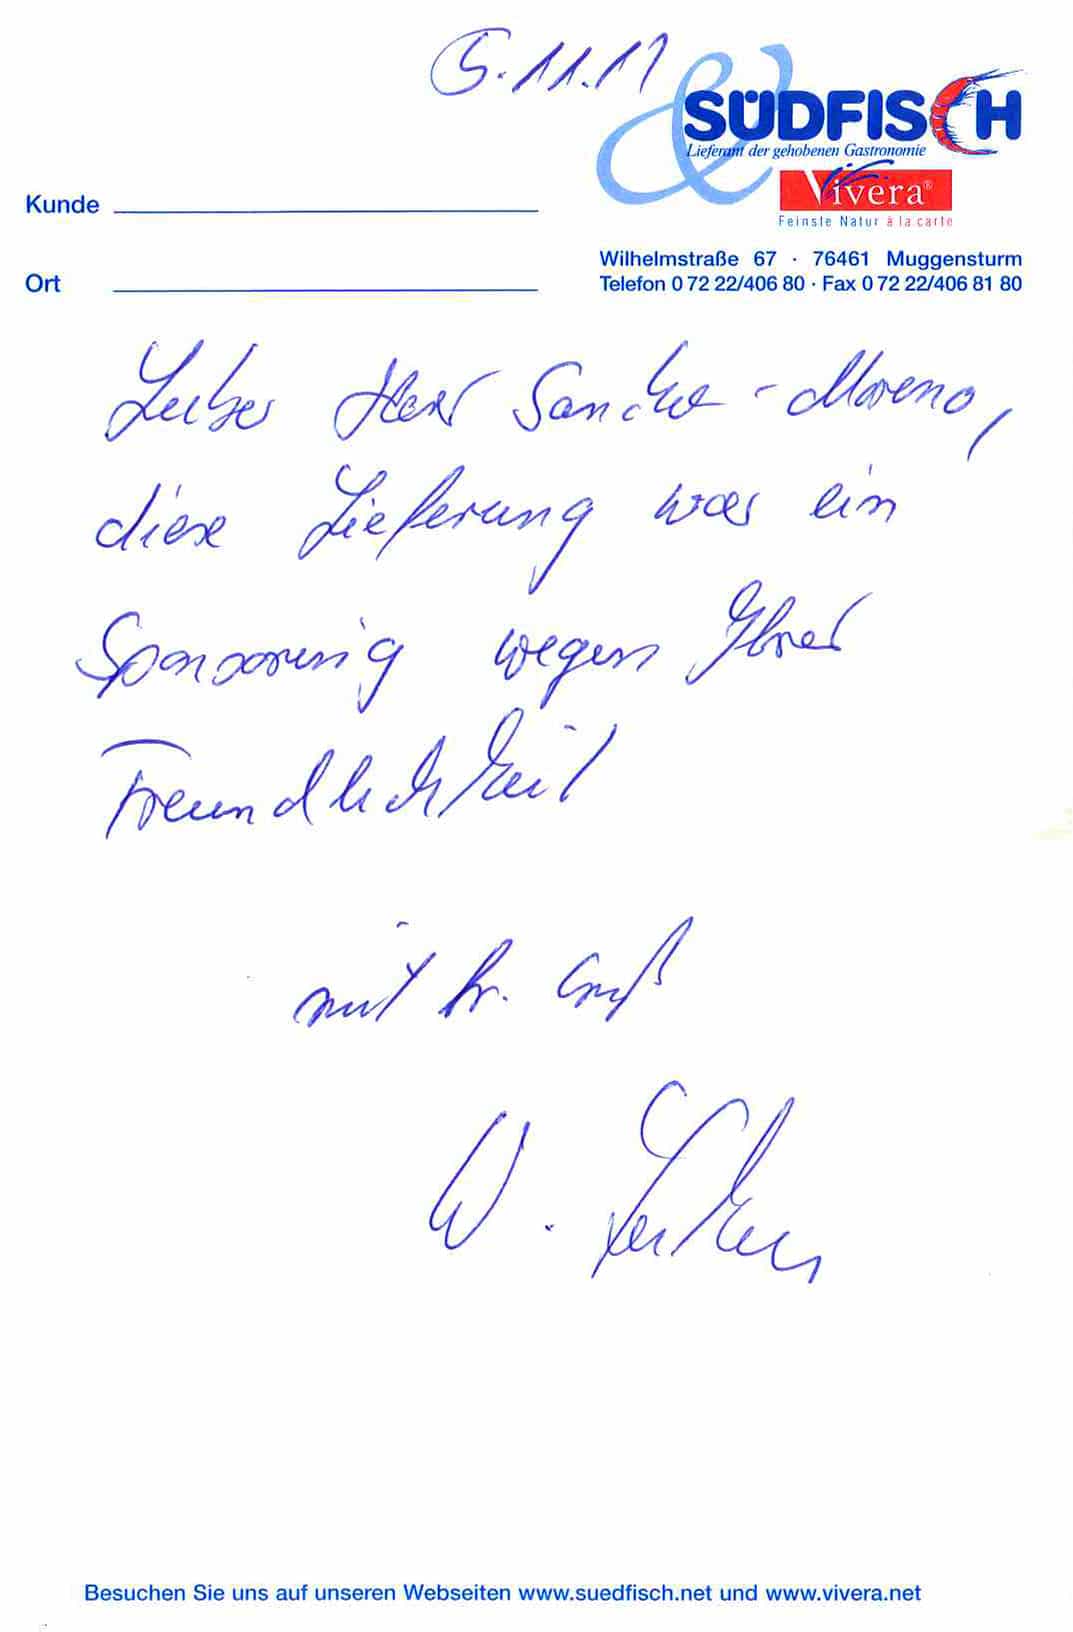 5.11.11
SÜDFISCH
Lieferant der gehobenen Gastronomie
&
Vivera®
Feinste Natur à la carte
Kunde
Wilhelmstraße 67 · 76461 Muggensturm
Ort
Telefon 0 72 22/406 80 · Fax 0 72 22/406 81 80
Lieber Herr - Moreno,
diese Lieferung war ein
Sponsoring wegen Ihrer
Freundlichkeit
mit fr. Gruß
W.
Besuchen Sie uns auf unseren Webseiten www.suedfisch.net und www.vivera.net